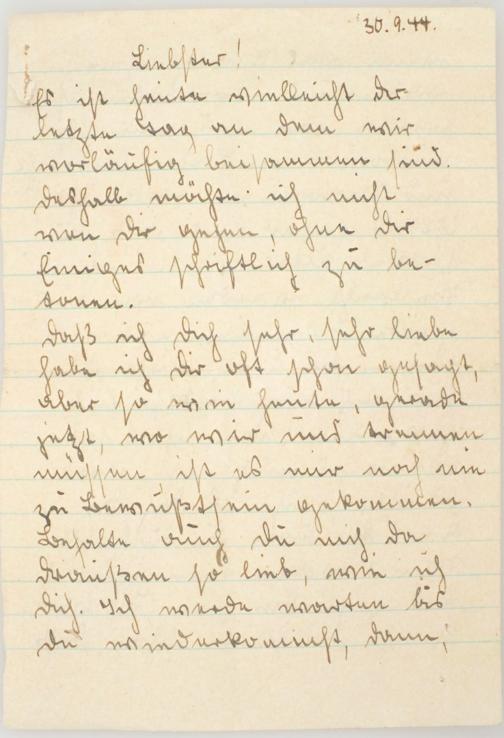 30.9.44.
Liebster!
Es ist heute vielleicht der
letzte Tag an dem wir
vorläufig beisammen sind.
Deshalb möchte ich nicht
von Dir gehen, ohne Dir
Einiges schriftlich zu be-
tonen.
Daß ich Dich sehr, sehr liebe
habe ich Dir oft schon gesagt,
aber so wie heute, gerade
jetzt, wo wir uns trennen
müssen, ist es mir noch nie
zu Bewußtsein gekommen.
Behalte auch Du mich da
draußen so lieb, wie ich
Dich. Ich werde warten bis
Du wiederkommst, dann,